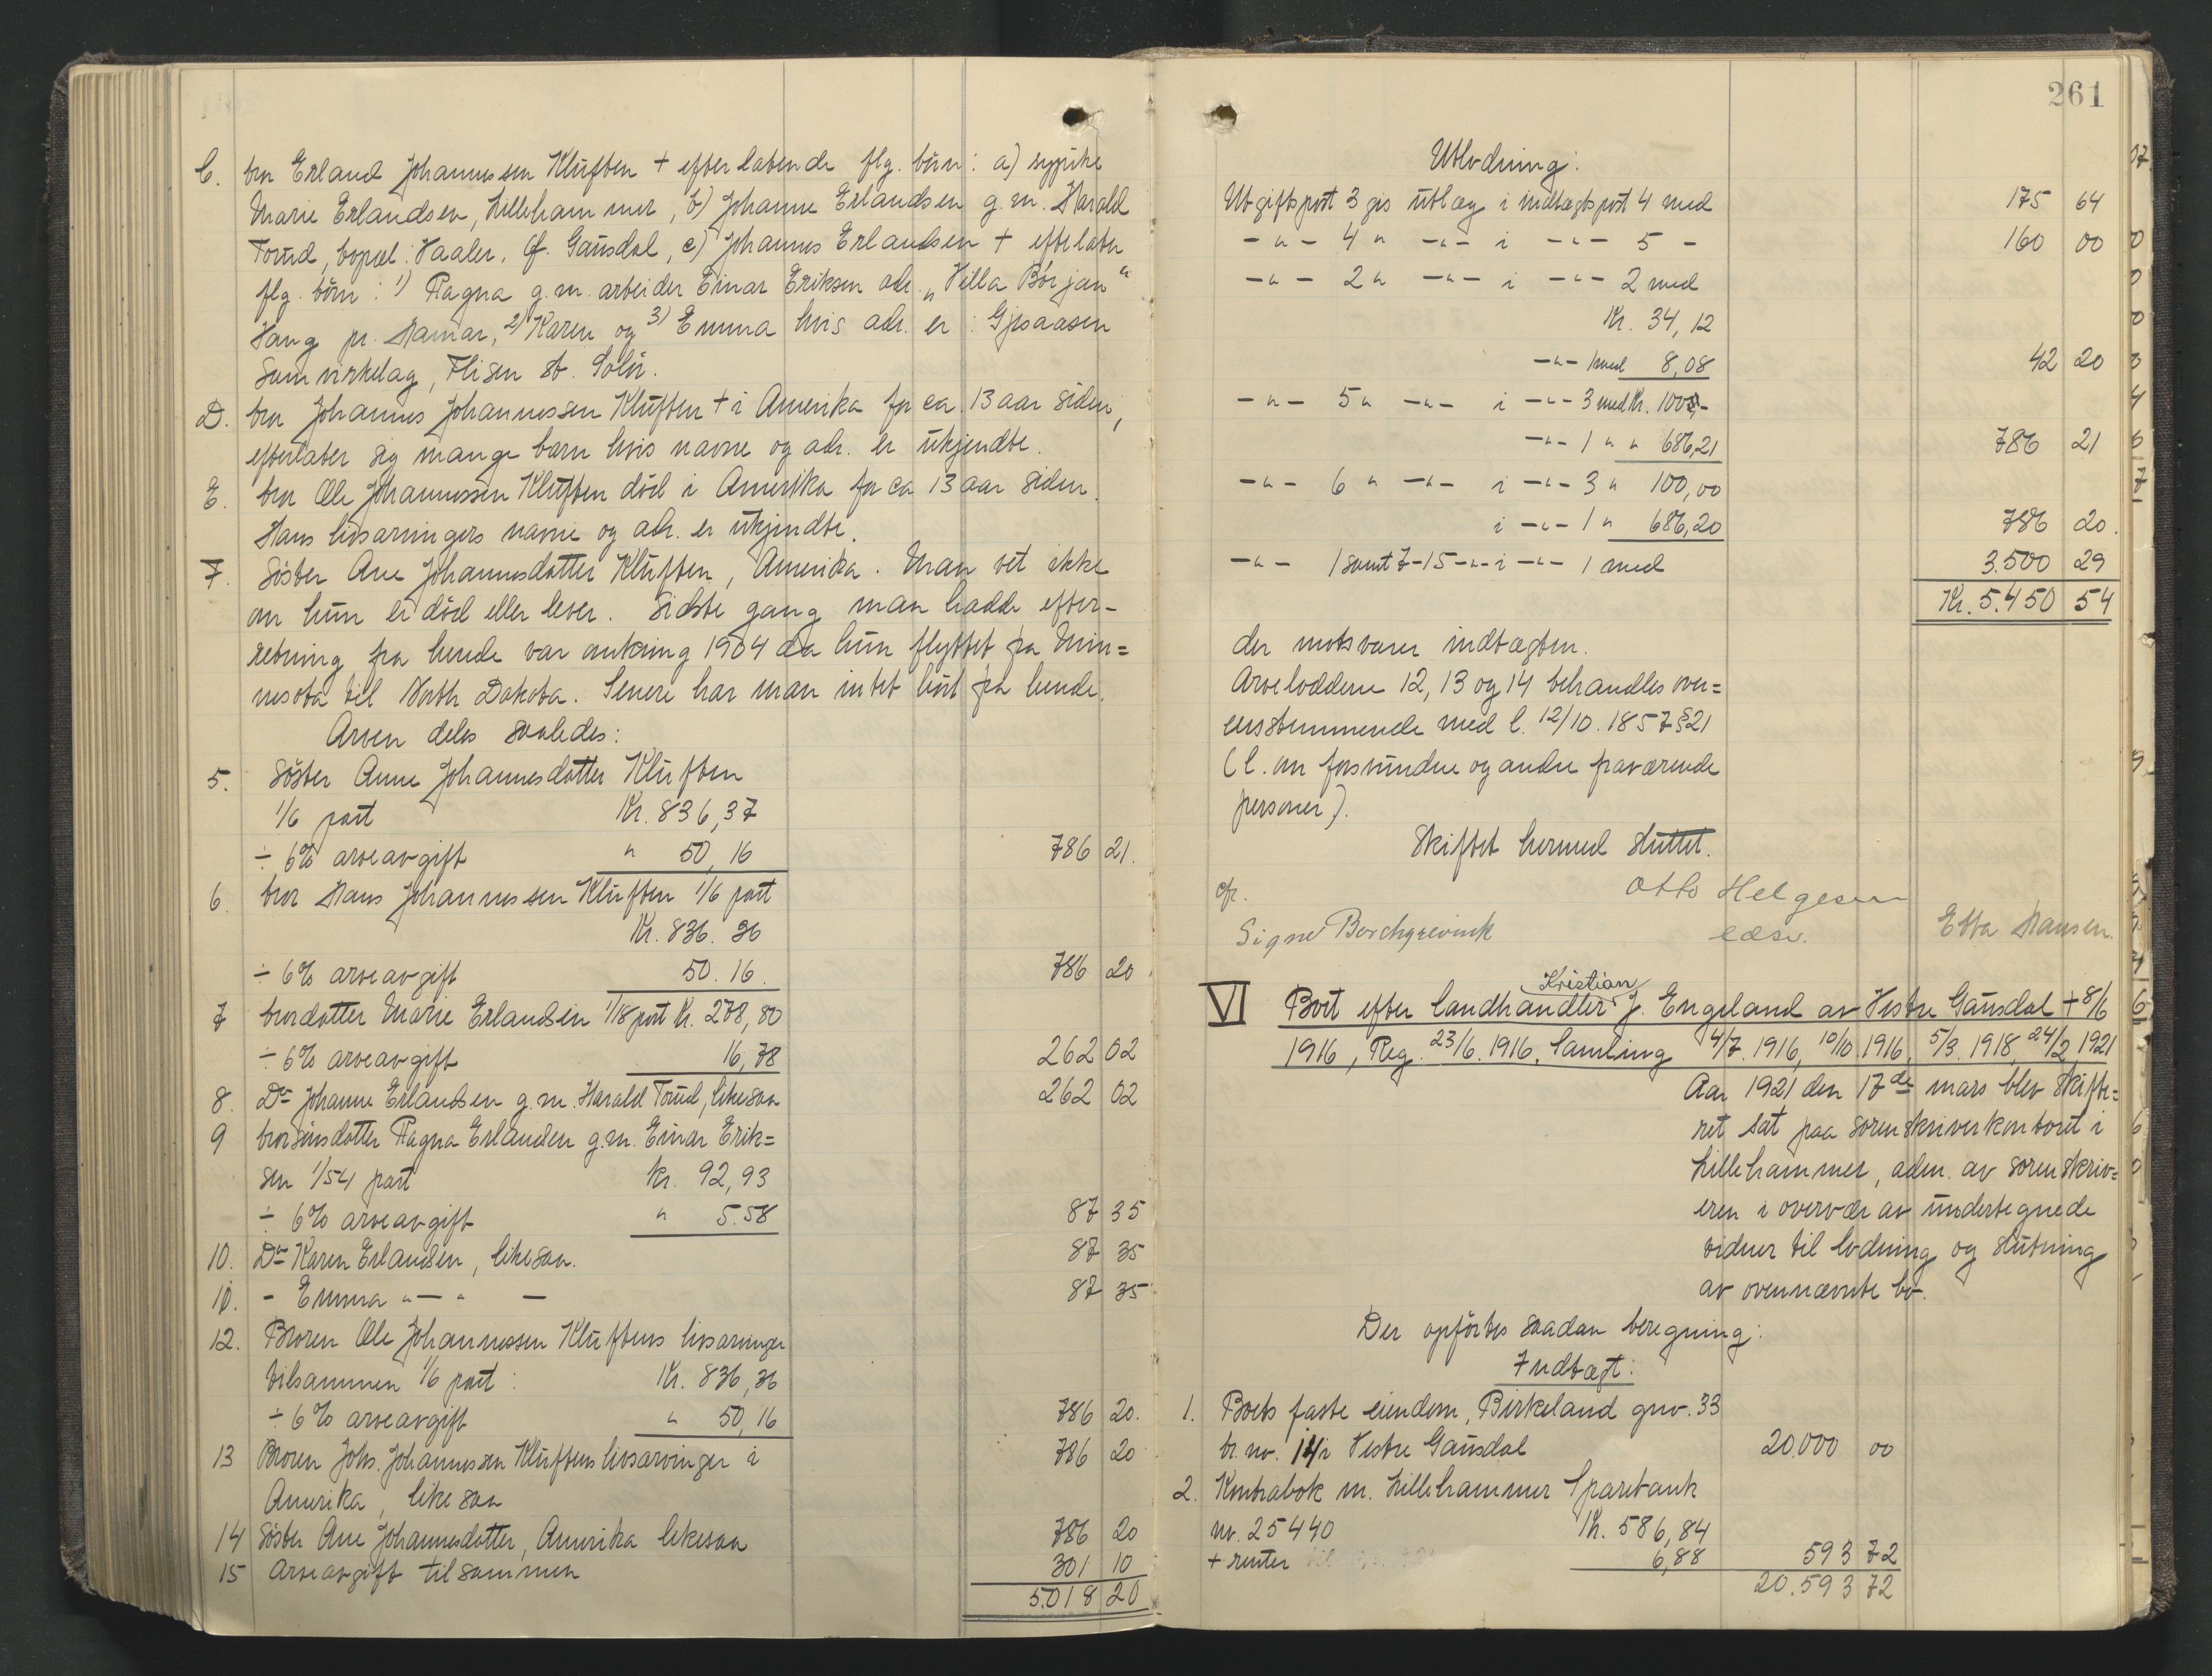 C. bror Erland Johannessen Kluften + efterlatende flg. børn: a) sypike
Marie Erlandsen, Lillehammer, b) Johanne Erlandsen g.m. Harald
Torud, bopæl: Vaaler, Ø. Gausdal, c) Johannes Erlandsen + efterlater
flg. børn: 1) Ragna g.m. arbeider Einar Eriksen adr. „Villa Børjan“
Vang pr. Hamar, 2) Karen og 3) Emma hvis adr. er: Gjesaasen
Samvirkelag, Flisen st. Solør.
D. bror Johannes Johannessen Kluften + i Amerika for ca. 13 aar siden,
efterlater sig mange barn hvis navne og adr. er ukjendte.
E. bror Ole Johannessen Kluften død i Amerika for ca 13 aar siden.
Hans livsarvingers navne og adr. er ukjendte.
F. Søster Ane Johannesdatter Kluften, Amerika. Man vet ikke
om hun er død eller lever. Sidste gang man hadde efter-
retning fra hende var omkring 1904 da hun flyttet fra Min=
nesota til North Dakota. Senere har man intet hørt fra hende.
Arven deles saaledes:
5. Søster Anne Johannesdatter Kluften
1/6 part Kr. 836,37
÷ 6% arveavgift " 50,16 786 21.
6. bror Hans Johannessen Kluften 1/6 part
Kr. 836.36
÷ 6% arveavgift 50.16. 786 20
7 brordatter Marie Erlandsen 1/18 part Kr. 278,80
÷ 6% arveavgift 16,78 262 02
8. Do Johanne Erlandsen g.m. Harald Torud, likesaa 262 02
9 brorsønsdatter Ragna Erlandsen g.m. Einar Erik=
sen 1/54 part kr. 92,93
÷ 6% arveavgift " 5.58 87 35
10. Do Karen Erlandsen, likesaa. 87 35
11. - Emma "—" — 87 35
12. Broren Ole Johannessen Kluftens livsarvinger
tilsammen 1/6 part: Kr. 836,36
÷ 6% arveavgift " 50,16 786 20.
13 Broren Johs. Johannessen Kluftens livsarvinger i 786 20
Amerika, likesaa
14 Søster Ane Johannesdatter, Amerika likesaa 786 20
15 Arveavgift tilsammen 301 10
5.018 20
261
Utlodning:
Utgiftspost 3 gis utlæg i indtægtspost 4 med 175 64
-"- 4 " -"- i -"- 5 - 160 00
-"- 2 " -"- i -"- 2 med
Kr. 34,12
-"- 1 med 8,08 42 20
-"- 5 " -"- i -"- 3 med Kr. 100,-
-"- 1 " " 686,21 786 21
-"- 6 " -"- i -"- 3 " 100,00
i -"- 1 " 686,20 786 20.
-"- 1 samt 7-15 -"- i -"- 1 med 3.500 29
Kr. 5.450 54
der motsvarer indtægten.
Arveloddene 12, 13 og 14 behandles over=
ensstemmende med l. 12/10. 1857 §21
(l. om forsvundne og andre fraværende
personer).
Skiftet hermed sluttet.
cfr. Otto Helgesen
Signe Borchgrevink edsv. Etta Hansen.
VI Boet efter landhandler Kristian J. Engeland av Vestre Gausdal + 8/6
1916, Reg. 23/6. 1916, Samling 4/7. 1916, 10/10. 1916, 5/3. 1918, 24/2 1921
Aar 1921 den 17de mars blev skifte=
ret sat paa sorenskriverkontoret i
Lillehammer, adm. av sorenskriv=
eren i overvær av undertegnede
vidner til lodning og slutning
av ovennævnte bo.
Der opførtes saadan beregning:
Indtægt:
1. Boets faste eiendom, Birkeland gnr. 33
br. nr. 14 i Vestre Gausdal 20.000 00
2. Kontrabok m. Lillehammer Sparebank
nr. 25440 Kr. 586,84
+ renter 6,88 593 72
20.593 72